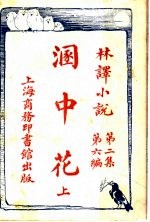 林譯小說
第二集
第六編
溷中花
上
上海商務印書館出版